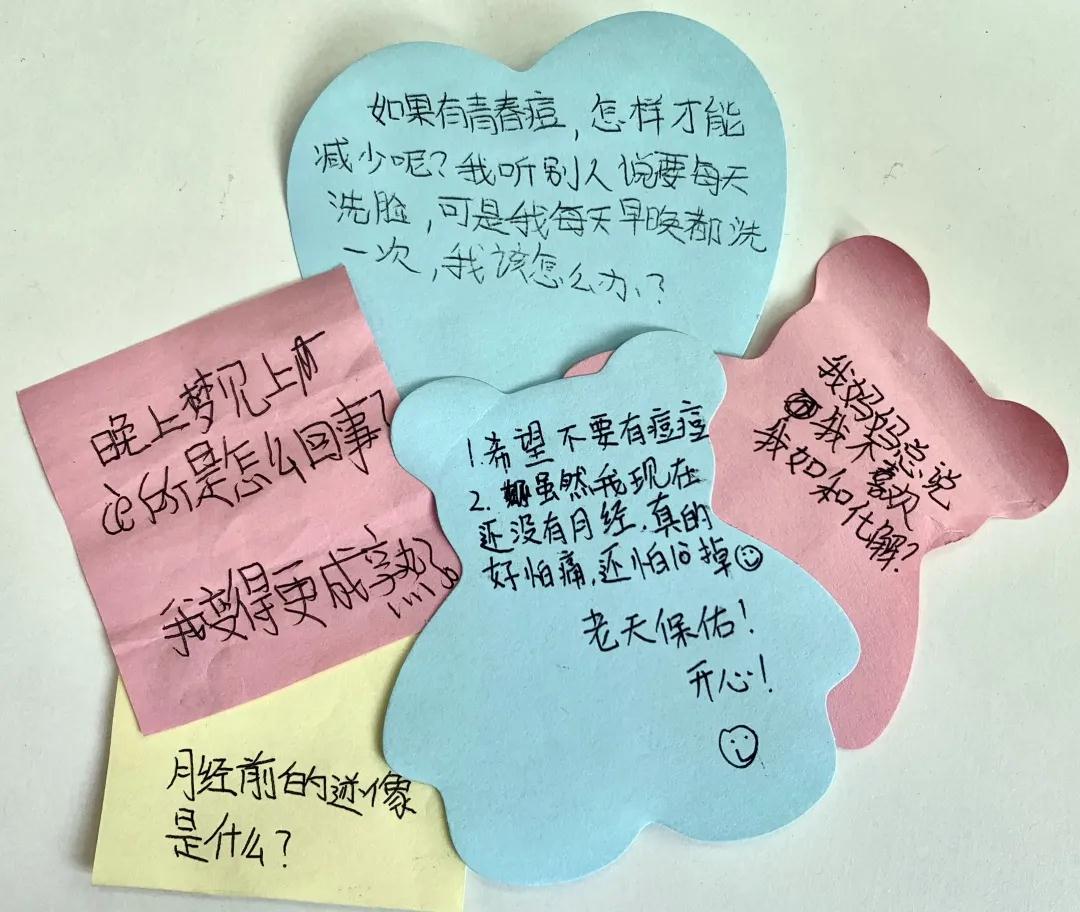 如果有青春痘,怎样才能
减少呢?我听别人说要每天
洗脸,可是我每天早晚都洗
一次,我该怎么办?
晚上梦见上
是怎么回事?
我变得更成熟
1.希望不要有痘痘
2.虽然我现在
还没有月经,真的
好怕痛,还怕掉
老天保佑!
开心!
我妈妈总说
我不喜欢
我如和化解?
月经前的迹像
是什么?